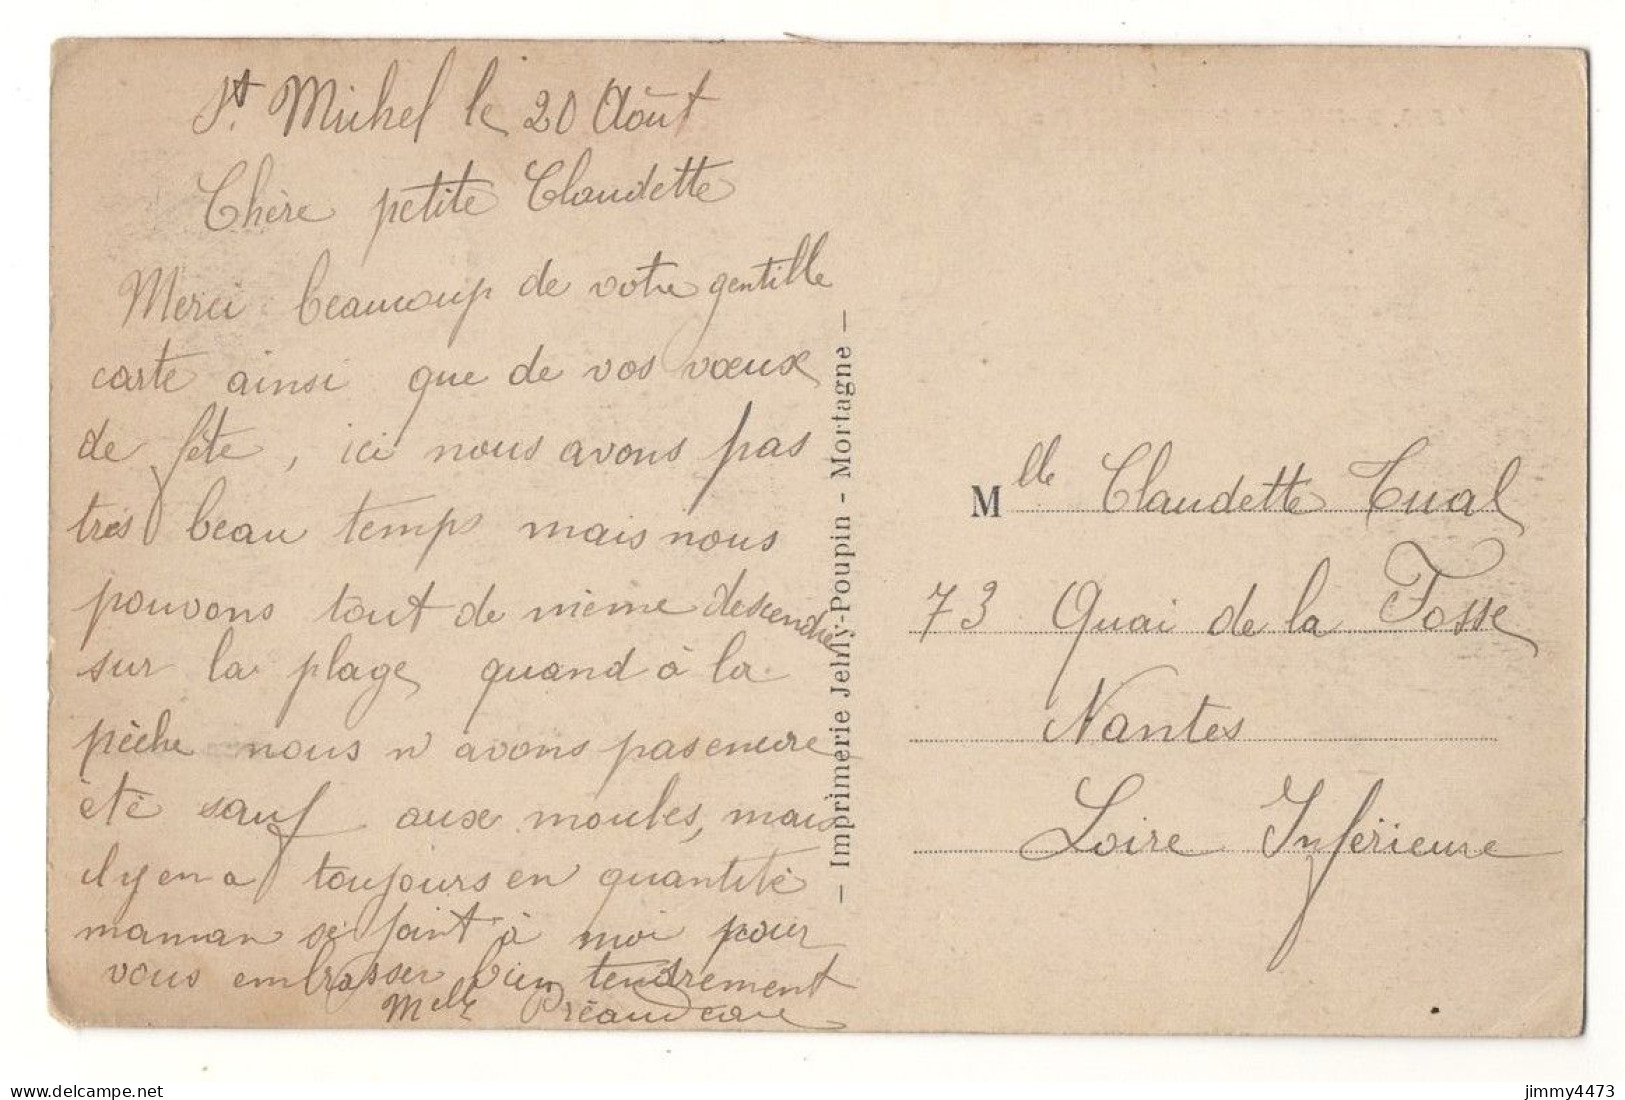 St Michel le 20 Août
Chère petite Claudette
Merci beaucoup de votre gentille
carte ainsi que de vos vœux
de fête, ici nous avons pas
très beau temps mais nous
pouvons tout de même descendre
sur la plage quand à la
pèche nous n'avons pas encore
été sauf aux moules, mais
il y en a toujours en quantité
maman se joint à moi pour
vous embrasser bien tendrement
Melle Préaudeau
— Imprimerie Jehly-Poupin - Mortagne —
Mlle Claudette Tual
73 Quai de la Fosse
Nantes
Loire Inférieure
www.delcampe.net
jimmy4473